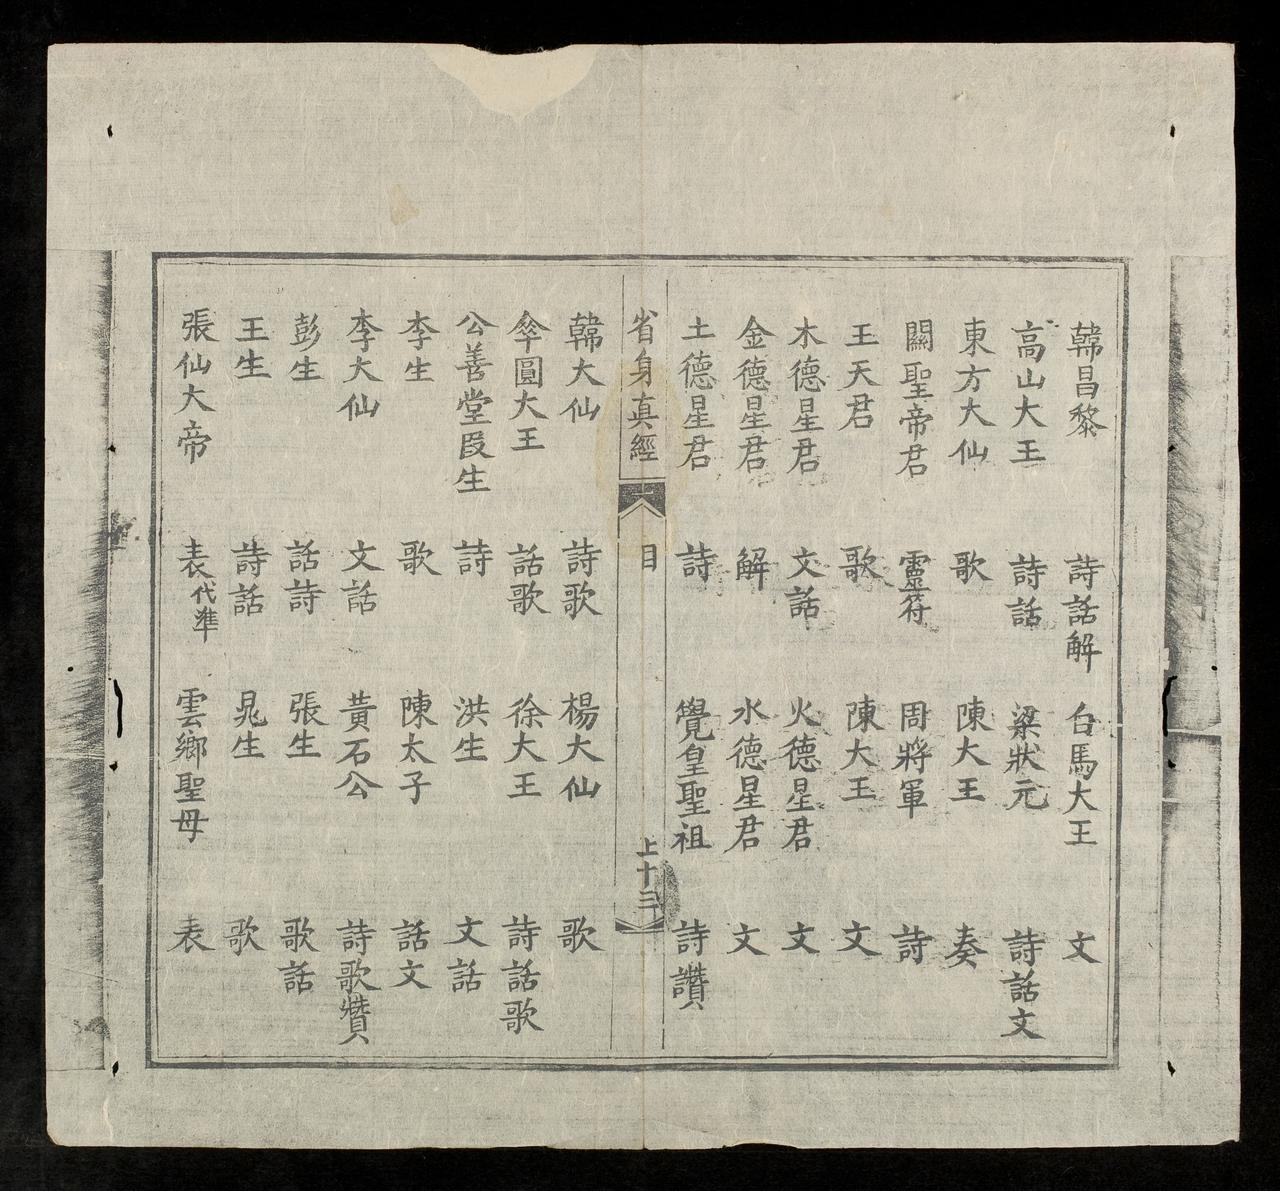 韓昌黎 詩話解 白馬大王 文
高山大王 詩話 梁狀元 詩話文
東方大仙 歌 陳大王 奏
關聖帝君 靈符 周將軍 詩
王天君 歌 陳大王 文
木德星君 文話 火德星君 文
金德星君 解 水德星君 文
土德星君 詩 覺皇聖祖 詩讚
省身真經 目 上十三
韓大仙 詩歌 楊大仙 歌
傘圓大王 話歌 徐大王 詩話歌
公善堂段生 詩 洪生 文話
李生 歌 陳太子 話文
李大仙 文話 黄石公 詩歌贊
彭生 話詩 張生 歌話
王生 詩話 晁生 歌
張仙大帝 表代準 雲鄉聖母 表